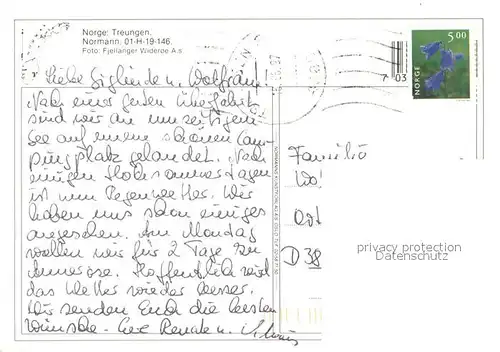 Norge: Treungen.
Normann. 01-H-19-146.
Foto: Fjellanger Widerøe A.s
5.00
NORGE
7 03
Liebe Sieglinde u. Wolfram,
Nach einer guten Überfahrt
sind wir an unserem
See auf einem schönen Cam-
pingplatz gelandet. Nach
einigen Hochsommertagen
ist nun Regenwetter. Wir
haben uns schon einiges
angesehen. Am Montag
wollen wir für 2 Tage zu
Hoffentlich wird
das Wetter wieder besser.
Wir senden Euch die besten
Wünsche - Eure Renate u.
Familie
Wo
Ost
D 38
privacy protection
Datenschutz